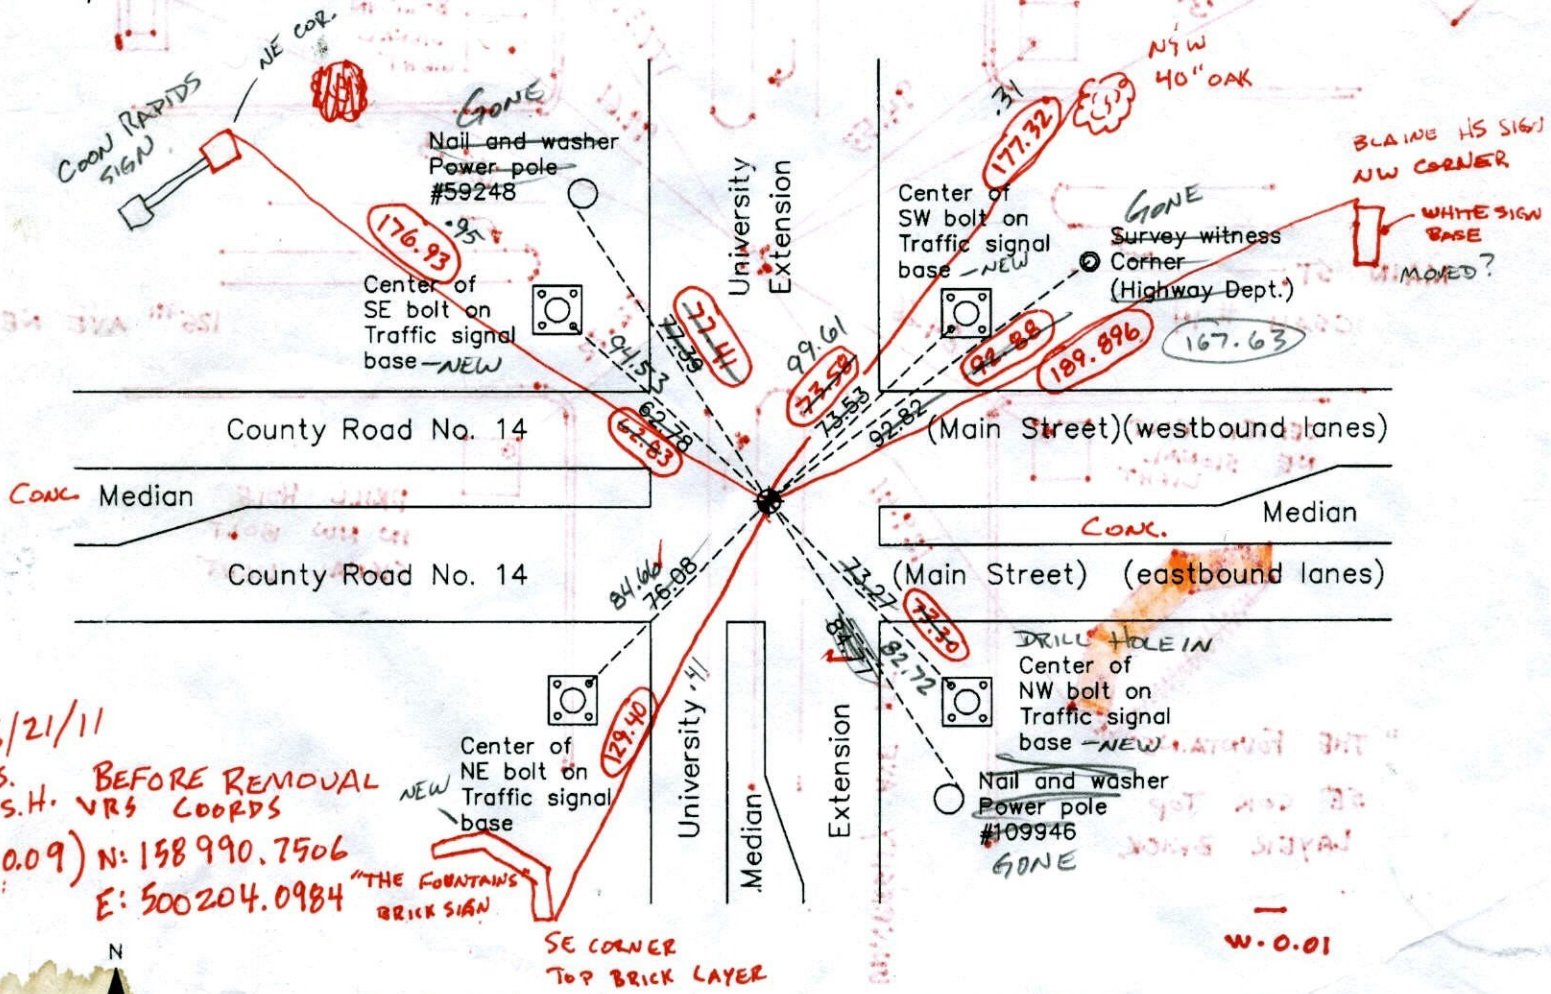 NE COR.
COON RAPIDS
SIGN
GONE
Nail and washer
Power pole
#59248
.95
176.93
Center of
SE bolt on
Traffic signal
base - NEW
University
Extension
77.41
77.39
94.53
62.78
62.83
.31
177.32
N/W
40" OAK
Center of
SW bolt on
Traffic signal
base - NEW
GONE
Survey witness
Corner
(Highway Dept.)
BLAINE HS SIGN
NW CORNER
WHITE SIGN
BASE
MOVED?
99.61
73.58
73.53
92.88
92.82
189.896
167.63
County Road No. 14
(Main Street)(westbound lanes)
CONC. Median
CONC.
Median
County Road No. 14
(Main Street) (eastbound lanes)
84.66
76.08
73.27
73.30
84.71
82.72
DRILL HOLE IN
Center of
NW bolt on
Traffic signal
base - NEW
Nail and washer
Power pole
#109946
GONE
.41
129.40
University
Median
Extension
NEW
Center of
NE bolt on
Traffic signal
base
/21/11
S. BEFORE REMOVAL
S.H. VRS COORDS
0.09) N: 158990.7506
E: 500204.0984
"THE FOUNTAINS"
BRICK SIGN
SE CORNER
TOP BRICK LAYER
W. 0.01
N